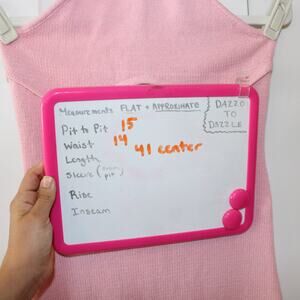 Measurements FLAT + APPROXIMATE
DAZZD
TO
DAZZLE
Pit to Pit 15
Waist 14
41 center
Length
Sleeve (from pit)
Rise
Inseam